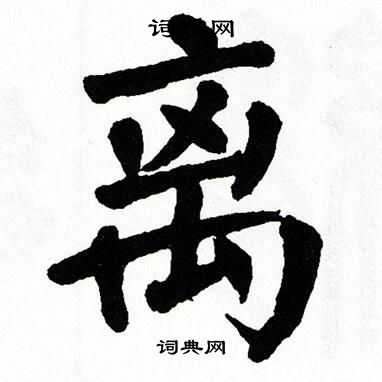 词典网
离
词典网